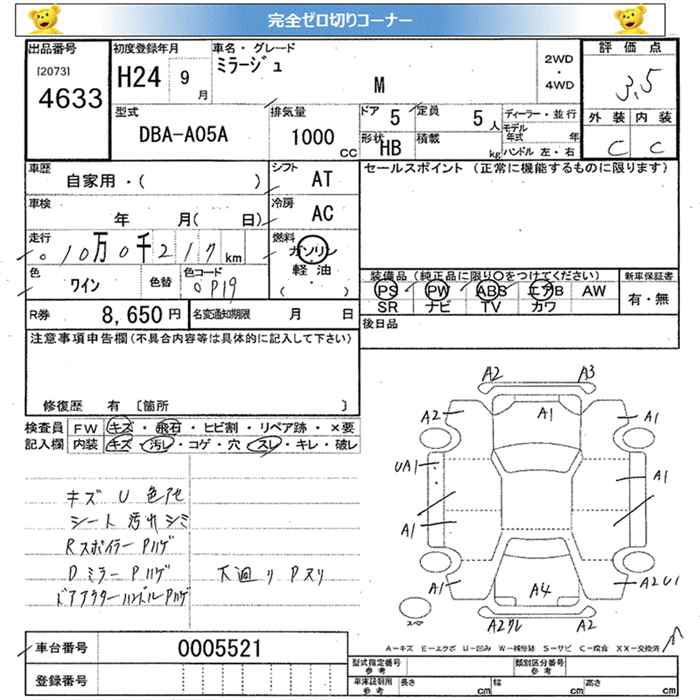 完全ゼロ切りコーナー
出品番号
[2073]
4633
初度登録年月
H24 9月
車名・グレード
ミラージュ
M
2WD
・
4WD
評価点
3.5
外装 内装
C C
型式
DBA-A05A
排気量
1000 CC
ドア 5
定員 5人
形状 HB
積載 kg
ディーラー・並行
モデル年式 年
ハンドル 左・右
車歴
自家用・( )
シフト
AT
車検
年 月( 日)
冷房
AC
走行
10万0千217km
燃料
ガソリン
軽油
( ・ )
色
ワイン
色替
色コード
P19
R券 8,650円
名変通知期限 月 日
セールスポイント (正常に機能するものに限ります)
装備品(純正品に限り○をつけてください)
PS PW ABS エアB AW
SR ナビ TV カワ
新車保証書
有・無
後日品
注意事項申告欄(不具合内容等は具体的に記入して下さい)
修復歴 有 〔箇所 〕
検査員 FW キズ・飛石・ヒビ割・リペア跡・×要
記入欄 内装 キズ・汚レ・コゲ・穴・スレ・キレ・破レ
キズ U 色アセ
シート 汚れ シミ
Rスポイラー Pハゲ
Dミラー Pハゲ
ドアアウターハンドル Pハゲ
下廻り Pスリ
A2 A3
A2 A1 A1
UA1 A1
A1
A1 A4 A2U1
A2クレ A2
A-キズ E-エクボ U-凹み W-補修跡 S-サビ C-腐食 XX-交換済
車台番号 0005521
登録番号
型式指定番号 参考
類別区分番号 参考
車庫証明用 参考
長さ cm
幅 cm
高さ cm